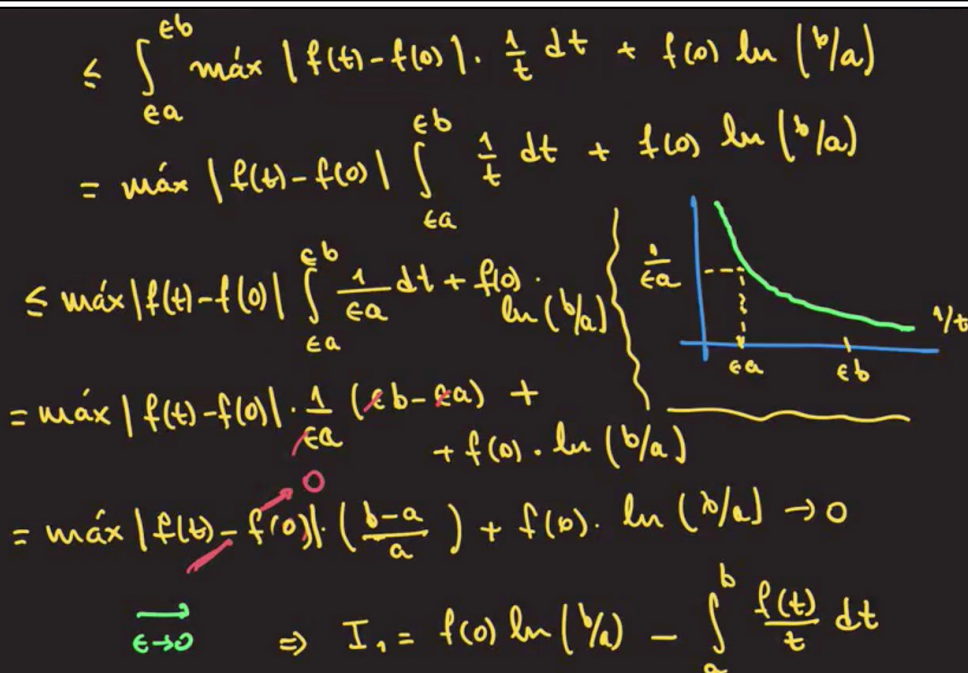 ≤ ∫_{ϵa}^{ϵb} máx |f(t)-f(0)| · 1/t dt + f(0) ln (b/a)
= máx |f(t)-f(0)| ∫_{ϵa}^{ϵb} 1/t dt + f(0) ln (b/a)
≤ máx|f(t)-f(0)| ∫_{ϵa}^{ϵb} 1/ϵa dt + f(0) ·
ln (b/a)
1/ϵa
1/t
ϵa ϵb
= máx |f(t)-f(0)| · 1/ϵa (ϵb-ϵa) +
+ f(0) · ln (b/a)
0
= máx |f(t)-f(0)| · (b-a/a) + f(0) · ln (b/a) → 0
ϵ→0
⇒ I₁ = f(0) ln (b/a) - ∫_{a}^{b} f(t)/t dt